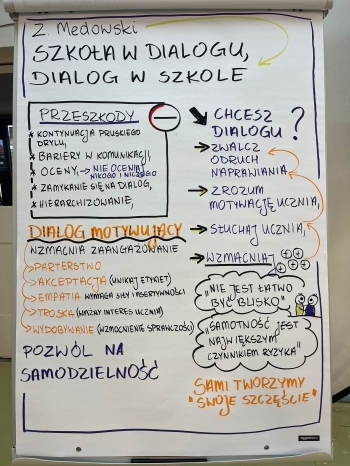 Z. Medowski
SZKOŁA W DIALOGU,
DIALOG W SZKOLE
PRZESZKODY
* KONTYNUACJA PRUSKIEGO
DRYLU,
* BARIERY W KOMUNIKACJI,
* OCENY, → NIE OCENIAJ
NIKOGO I NICZEGO
* ZAMYKANIE SIĘ NA DIALOG,
* HIERARCHIZOWANIE,
CHCESZ
DIALOGU?
→ ZWALCZ
ODRUCH
NAPRAWIANIA,
→ ZROZUM
MOTYWACJĘ UCZNIA,
→ SŁUCHAJ UCZNIA,
→ WZMACNIAJ
DIALOG MOTYWUJĄCY
WZMACNIA ZAANGAŻOWANIE
> PARTERSTWO
> AKCEPTACJA (UNIKAJ ETYKIET)
> EMPATIA WYMAGA SIŁY I ASERTYWNOŚCI
> TROSKA (WAŻNY INTERES UCZNIA)
> WYDOBYWANIE (WZMOCNIENIE SPRAWCZOŚCI)
POZWÓL NA
SAMODZIELNOŚĆ
"NIE JEST ŁATWO
BYĆ BLISKO"
"SAMOTNOŚĆ JEST
NAJWIĘKSZYM
CZYNNIKIEM RYZYKA"
SAMI TWORZYMY
"SWOJE SZCZĘŚCIE"